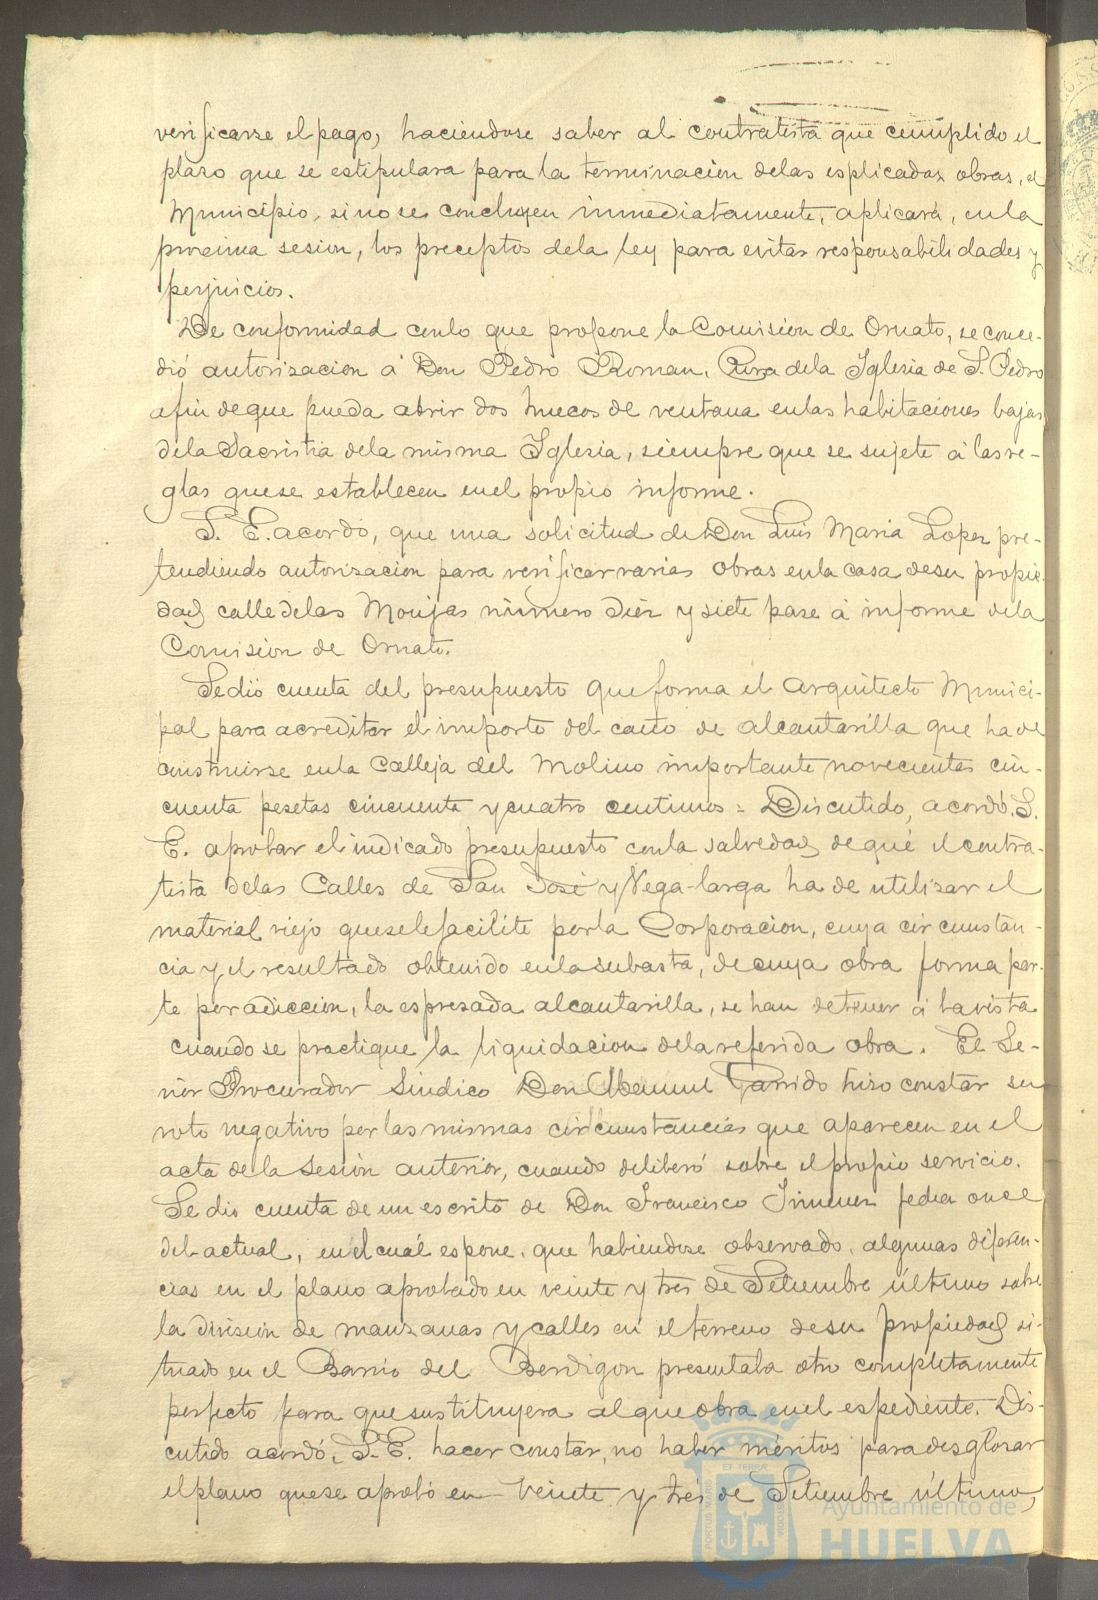 verificarse el pago, haciendose saber al contratista que cumplido el
plazo que se estipulara para la terminacion delas esplicadas obras, el
Municipio, si no se concluyen inmediatamente, aplicará, en la
procsima sesion, los preceptos dela ley para evitar responsabilidades y
perjuicios.
De conformidad conlo que propone la Comision de Ornato, se conce-
dió autorizacion á Don Pedro Roman, Cura dela Iglesia de S. Pedro
afin deque pueda abrir dos huecos de ventana enlas habitaciones bajas
dela Sacristia dela misma Iglesia, siempre que se sujete á las re-
glas quese establecen enel propio informe.
S. E. acordó, que una solicitud de Don Luis Maria Lopez pre-
tendiendo autorizacion para verificar varias obras enla casa desu propie-
dad calle delas Monjas número diez y siete pase á informe dela
Comision de Ornato.
Se dió cuenta del presupuesto que forma el Arquitecto Munici-
pal para acreditar el importe del caño de alcantarilla que ha de
construirse enla Calleja del Molino importante novecientas cin-
cuenta pesetas cincuenta y cuatro centimos = Discutido, acordó S.
E. aprobar el indicado presupuesto conla salvedad de qué el contra-
tista delas Calles de San José y Vega-larga ha de utilizar el
material viejo quesele facilite porla Corporacion, cuya circunstan-
cia y el resultado obtenido enla subasta, de cuya obra forma par-
te por adiccion, la espresada alcantarilla, se han detener á la vista
cuando se practique la liquidacion dela referida obra. El Se-
ñor Procurador Sindico Don Manuel Garrido hizo constar su
voto negativo por las mismas circunstancias que aparecen en el
acta de la sesión anterior, cuando deliberó sobre el propio servicio.
Se dió cuenta de un escrito de Don Francisco Jimenez fecha once
del actual, en el cual espone, que habiendose observado algunas diferen-
cias en el plano aprobado en veinte y tres de Setiembre último sobre
la division de manzanas y calles en el terreno desu propiedad si-
tuado en el Barrio del Berdigon presentaba otro completamente
perfecto para que sustituyera al que obra enel espediente. Dis-
cutido acordó, S. E. hacer constar, no haber méritos para desglosar
el plano quese aprobó en veinte y tres de Setiembre último,
PORTUS MARIS
ET TERRÆ
CUSTODIA
Ayuntamiento de
HUELVA